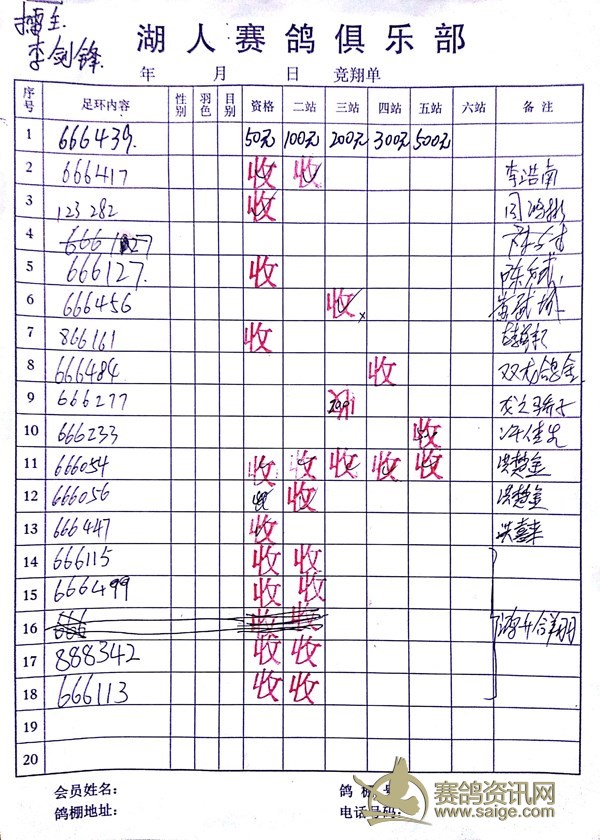 擂主
李剑锋
湖人赛鸽俱乐部
年 月 日 竞翔单
序号 足环内容 性别 羽色 目别 资格 二站 三站 四站 五站 六站 备注
1 666439. 50元 100元 200元 300元 500元
2 666417 收 收 李浩南
3 123282 收
4
5 666127. 收
6 666456 收
7 866161 收
8 666484 收 双龙鸽舍
9 666277
10 666233 收
11 666054 收 收 收 收 收 洪楚金
12 666056 收 收 洪楚金
13 666447 收
14 666115 收 收
15 666499 收 收
16 666
17 888342 收 收
18 666113 收 收
19
20
会员姓名:
鸽棚地址:
电话号码:
赛鸽资讯网
www.saige.com